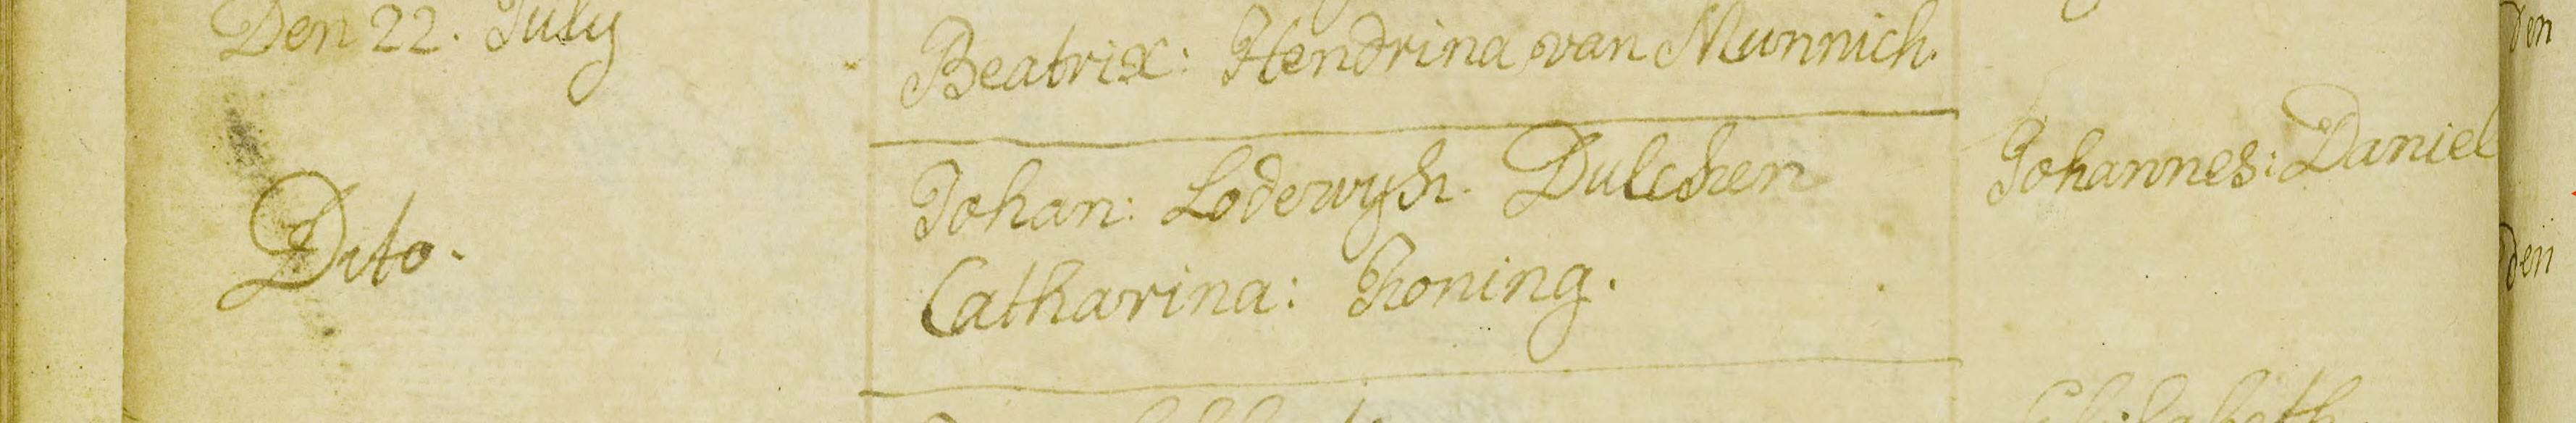 Den 22. July
Beatrix: Hendrina van Munnich.
Dito.
Johan: Loderwyk. Dulcken
Catharina: Koning.
Johannes: Daniel
Elisabeth
den
den